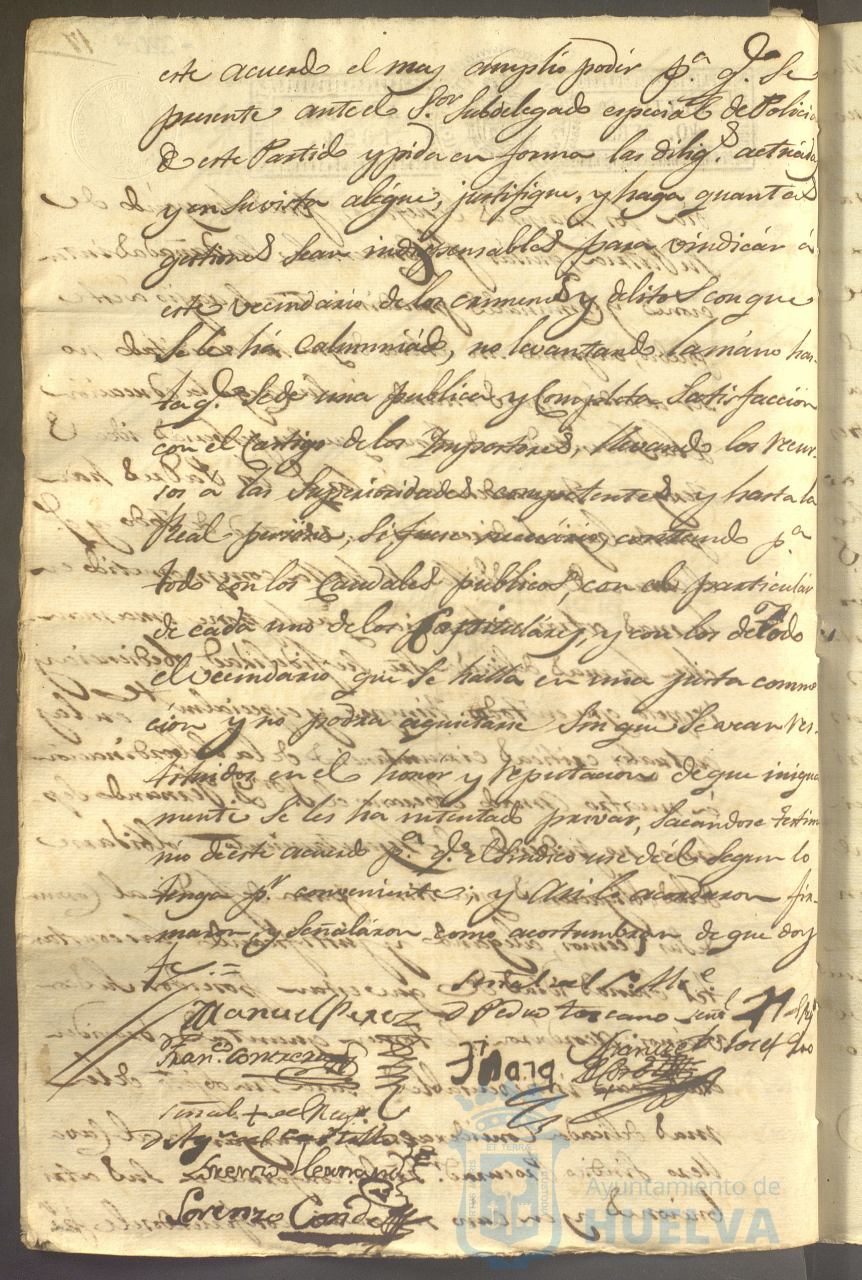 este acuerdo el mas amplio poder p.ª q.e Se
presente ante el S.or Subdelegado especial de Policia
de este Partido y pida en forma las dilig.s actuadas
y en su vista alegue, justifique, y haga quantas
gestiones sean indispensables para vindicar á
este vecindario de los crimenes y delitos con que
Se le há Calumniado, no levantando la máno has-
ta q.e Se dé una publica y Completa Satisfaccion
con el Castigo de los Impostores, llevando los recur-
sos a las Superioridades competentes y hasta la
Real persona, si fuere necesario, costeando p.ª
todo con los Caudales publicos, con el particulár
de cada uno de los Capituláres, y con los de todo
el vecindario que se halla en una justa conmo-
cion y no podrá aquietarse Sin que Se vean res-
tituidos en el honor y reputacion de que iniqua
mente se les ha intentado privar, Sacandose testimo
nio de este acuerdo p.ª q.e el Sindico use de él segun lo
tenga p.r conveniente; y Asi lo acordaron fir-
maron, y Señaláron como acostumbran de que doy
fé =
Manuel Perez D Pedro Toscano
Fran.co Contreras
Señal + el Reg.r
Lorenzo Hernand.z
Lorenzo Conde
17
Ayuntamiento de
HUELVA